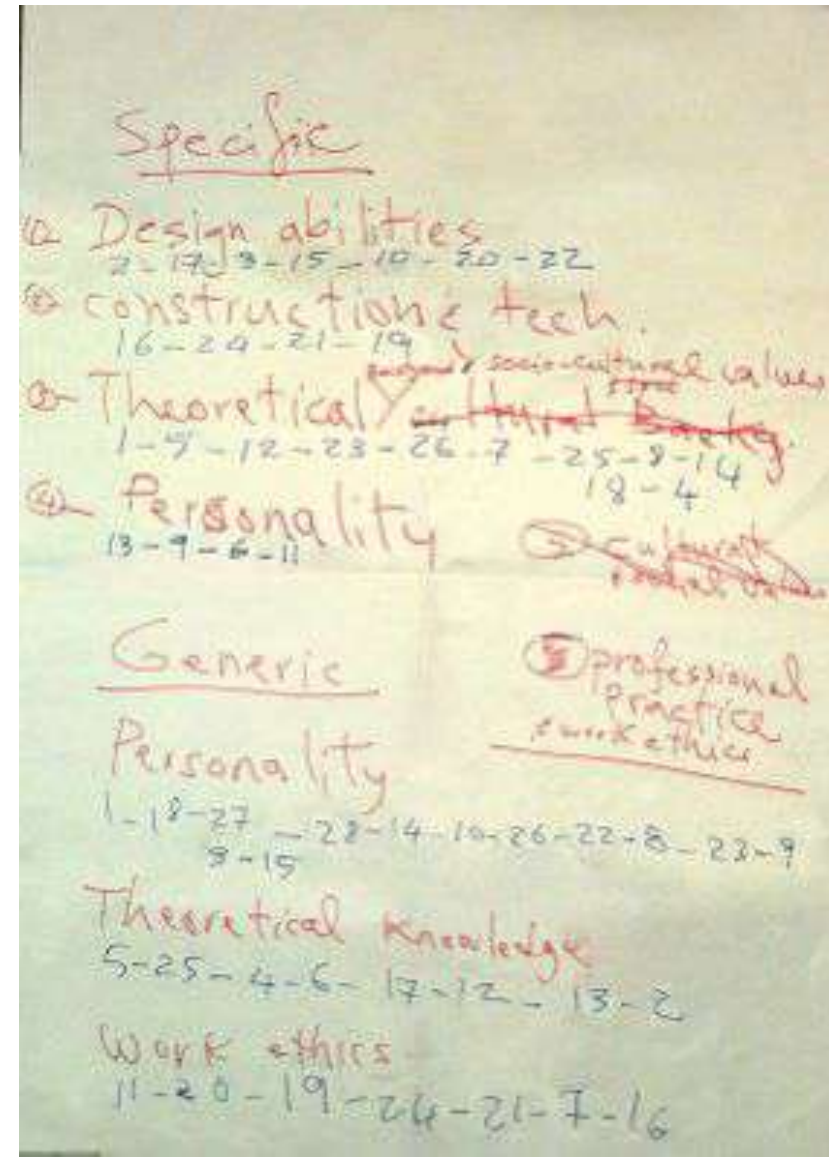 Specific
① Design abilities
2-17-3-15-10-20-22
② construction & tech.
16-24-21-19
socio-cultural values
③- Theoretical cultural Backg.
1-5-12-23-26-7-25-8-14
18-4
④- Personality
13-9-6-11
cultural &
social values
Generic
⑤ professional
practice
& work ethics
Personality
1-18-27-28-14-10-26-22-8-23-9
3-15
Theoretical Knowledge
5-25-4-6-17-12-13-2
Work ethics
11-20-19-24-21-7-16